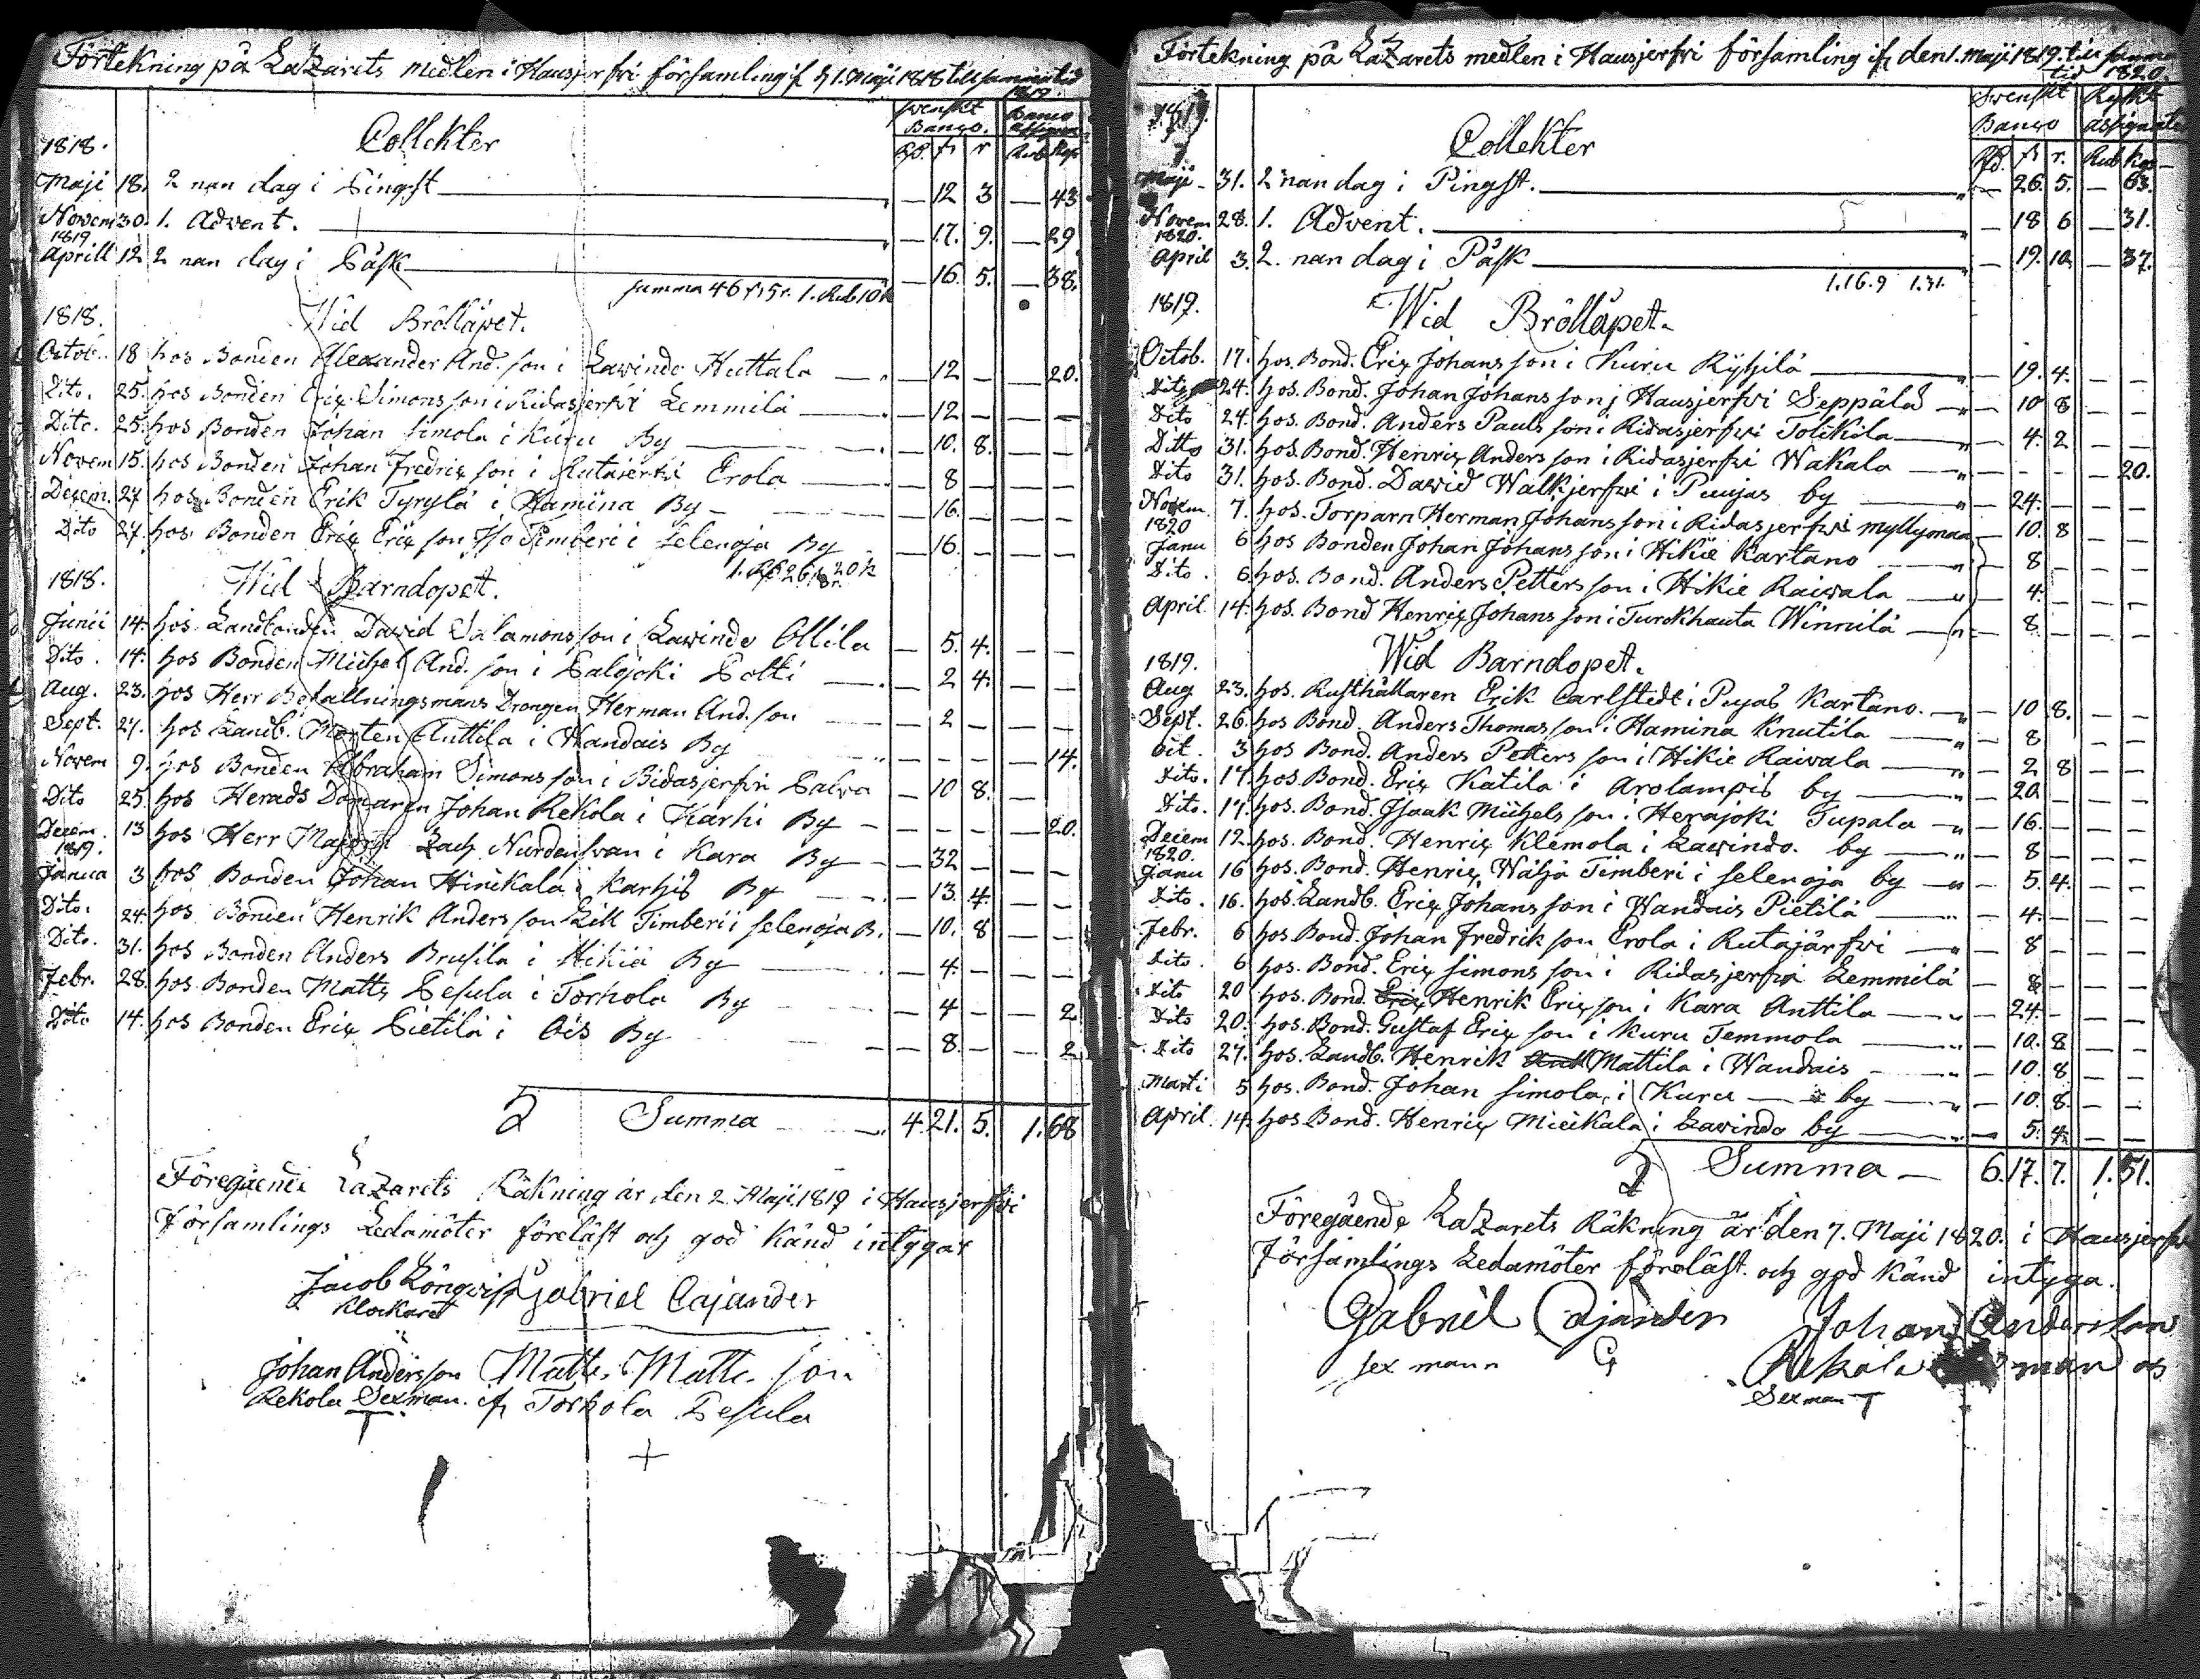 Förtekning på Lazarets medlen i Hausjerfvi församling if. d. 1. Maji 1818 till samma tid
1819.
Svenskt Banco. Banco Assignat.
1818. Collekter Rd. s r Rub Kop
Maji 18. 2 nan dag i Pingst — 12 3 — 43
Novem 30. 1. Advent. — 17. 9. — 29
1819
Aprill 12 2 nan dag i Påsk — 16. 5. — 38.
summa 46 s. 5 r. 1. Rub 10 k
1818. Wid Bröllåpet.
Octob. 18 hos Bonden Alexander And. son i Lavindo Huttala — 12 — — 20.
Dito. 25. hos Bonden Eric Simons son i Ridasjerfvi Lemmilä — 12 — — —
Dito. 25. hos Bonden Johan Simola i Kuru By — 10. 8. — —
Novem 15. hos Bonden Johan Fredric son i Rutajerfvi Erola — 8 — — —
Decem. 27 hos Bonden Erik Tyrylä i Hamina By — 16. — — —
Dito 27. hos Bonden Eric Eric son Iso Timberi i Selenoja By — 16. — — —
1. Rd 26 s 8 r. 20 k
1818. Wid Barndopet.
Junii 14. hos Landbonden David Salamons son i Lavindo Ollila — 5. 4. — —
Dito. 14. hos Bonden Michel And. son i Palojoki Polti — 2 4. — —
Aug. 23. hos Herr Befallningsmans Drängen Herman And. son — 2 — — —
Sept. 27. hos Landb. Morten Anttila i Wandais By — — — — 14.
Novem 9. hos Bonden Abraham Simons son i Ridasjerfvi Palva — 10 8. —
Dito 25. hos Herads Domaren Johan Rekola i Karhi By — — — — 20.
Decem. 13 hos Herr Majors Zach Nurdensvan i Kara By — 32 — — —
1819.
Janua 3 hos Bonden Johan Hinikala i Karhis By — 13. 4. — —
Dito. 24. hos Bonden Henrik Anders son Lill Timberi i Selenoja B. — 10. 8 — —
Dito. 31. hos Bonden Anders Brusila i Hikiä By — 4. — — —
Febr. 28. hos Bonden Matts Pesula i Torhola By — 4 — — 2
Dito 14. hos Bonden Eric Pietilä i Ois By — 8. — — 2
Summa 4. 21. 5. 1. 68
Föregående Lazarets Räkning är den 2. Maji 1819 i Hausjerfvi
Församlings Ledamöter föreläst och god känd intygar
Jacob Löngvist Gabriel Cajander
Klockaret
Johan Andersson Matts Matts son
Rekola Sexman. if. Torhola Pesula
Förtekning på Lazarets medlen i Hausjerfvi församling if. den 1. Maji 1819. till samma
tid 1820.
1819. Svenskt Banco Ryskt assignater
Collekter Rd. s r. Rub Kop
Maji 31. 2 nan dag i Pingst. — 26. 5. — 63.
Novem 28. 1. Advent. — 18 6 — 31.
1820.
April 3. 2. nan dag i Påsk — 19. 10. — 37.
1. 16. 9 1. 31.
1819. Wid Bröllåpet.
Octob. 17. hos. Bond. Eric Johans son i Kuru Kyhilä — 19. 4. — —
Dito 24. hos. Bond. Johan Johans son i Hausjerfvi Seppälä — 10 8 — —
Dito 24. hos. Bond. Anders Pauls son i Ridasjerfvi Tolkkila — 4. 2 — —
Ditto 31. hos. Bond. Henric Anders son i Ridasjerfvi Wakala — — — — 20.
Dito 31. hos. Bond. David Walkjerfvi i Puujas by — 24. — — —
Novem. 7. hos. Torparn Herman Johans son i Ridasjerfvi Myllymaa — 10. 8 — —
1820
Janu 6 hos Bonden Johan Johans son i Hikie Kartano — 8 — — —
Dito. 6. hos. Bond. Anders Petters son i Hikie Raivala — 4. — — —
April 14. hos. Bond Henric Johans son i Turckhauta Winnilä — 8 — — —
1819. Wid Barndopet.
Aug 23. hos. Rusthållaren Erik Carlstedt i Pujas Kartano. — 10 8. — —
Sept. 26. hos Bond. Anders Thomas son i Hamina Knutila — 8 — —
Oct. 3 hos Bond. Anders Petters son i Hikie Raivala — 2 8 — —
Dito. 17. hos. Bond. Eric Katila i Arolampis by — 20 — — —
Dito. 17. hos. Bond. Isaak Michels son i Herajoki Tupala — 16. — — —
Decem 12. hos. Bond. Henric Klemola i Lavindo. by — 8 — — —
1820.
Janu 16 hos. Bond. Henric Wähä Timberi i Selenoja by — 5. 4. — —
Dito. 16. hos. Landb. Eric Johans son i Wandais Pietilä — 4. — — —
Febr. 6 hos. Bond. Johan Fredrik son Erola i Rutajärfvi — 8 — — —
Dito. 6 hos. Bond. Eric Simons son i Ridasjerfvi Lemmilä — 8 — — —
Dito 20 hos. Bond. Eric Henrik Eric son i Kara Anttila — 24. — — —
Dito 20. hos. Bond. Gustaf Eric son i Kuru Temmola — 10. 8 — —
Dito 27. hos. Landb. Henrik Mattila i Wandais — 10. 8 — —
Marti 5 hos. Bond. Johan Simola, i Kuru by — 10. 8. — —
April. 14. hos Bond. Henric Mickala i Lavindo by — 5. 4. — —
Summa — 6. 17. 7. 1. 51.
Föregående Lazarets Räkning är den 7. Maji 1820. i Hausjerfvi
Församlings Ledamöter föreläst. och god känd intyga.
Gabriel Cajander Johan Anderson
sex mann Rekola man os
Sexman